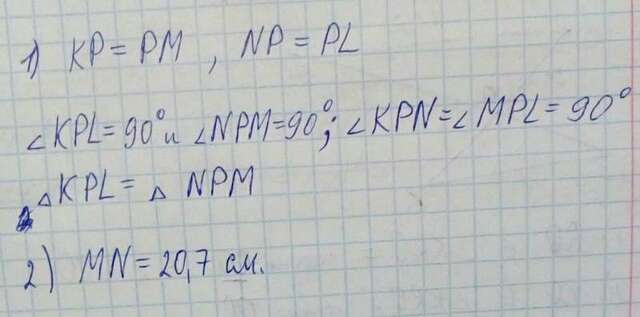 1) KP = PM , NP = PL
∠KPL = 90° и ∠NPM = 90°; ∠KPN = ∠MPL = 90°
△KPL = △NPM
2) MN = 20,7 см.